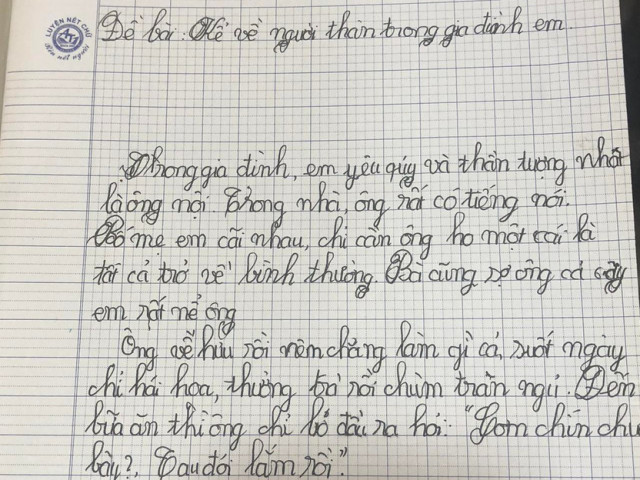 LUYỆN NÉT CHỮ
Rèn nết người
Đề bài: Kể về người thân trong gia đình em.
Trong gia đình, em yêu quý và thần tượng nhất
là ông nội. Trong nhà, ông rất có tiếng nói.
Bố mẹ em cãi nhau, chỉ cần ông ho một cái là
tất cả trở về bình thường. Bà cũng sợ ông cơ
em rất nể ông
Ông về hưu rồi nên chẳng làm gì cả, suốt ngày
chỉ hái hoa, thưởng trà rồi chùm trăn ngủ. Đến
bữa ăn thì ông chỉ bỏ đầu ra hỏi: "Cơm chín chư
bây?, Tau đói lắm rồi".